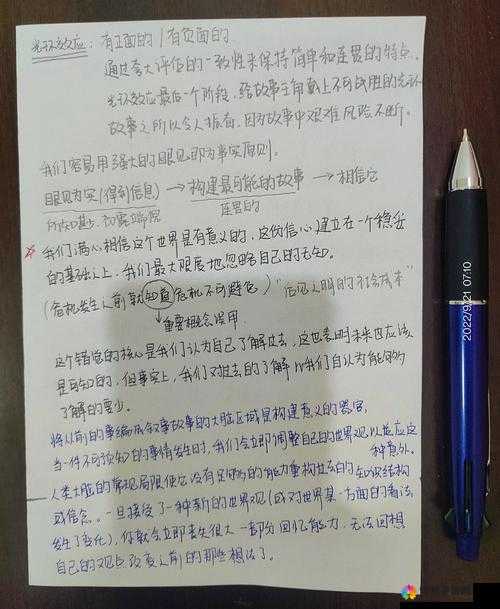 光环效应：有正面的/有负面的.
通过夸大评估的一致性来保持简单和连贯的特点.
光环效应最后一个阶段，给故事主角戴上不可战胜的光环
故事之所以令人振奋，因为故事中艰难风险不断。
我们容易用强大的眼见即为事实原则.
眼见为实(得到信息) → 构建最可能的故事 → 相信它
连贯的
☆ 我们满心相信这个世界是有意义的，这份信心建立在一个稳妥
的基础之上，我们最大限度地忽略自己的无知.
(危机发生之前就知道危机不可避免)
重要概念误用
这个错觉的核心是我们认为自己了解过去，这也表明未来也应该
是可知的，但事实上，我们对过去的了解比我们自认为能够的
了解的要少.
将从前的事编成叙事故事的大脑区域是构建意义的器官，
当一件不可预知的事情发生时，我们会立即调整自己的世界观以适应这
种意外.
人类大脑的常规局限使它没有足够的能力重构过去的知识结构
或信念。一旦接受了一种新的世界观(或对世界某一方面的看法
发生了变化)，你就会立即丧失很大一部分回忆能力，无法回想
自己的观点改变之前的那些想法了.
2022/9/21 07:10